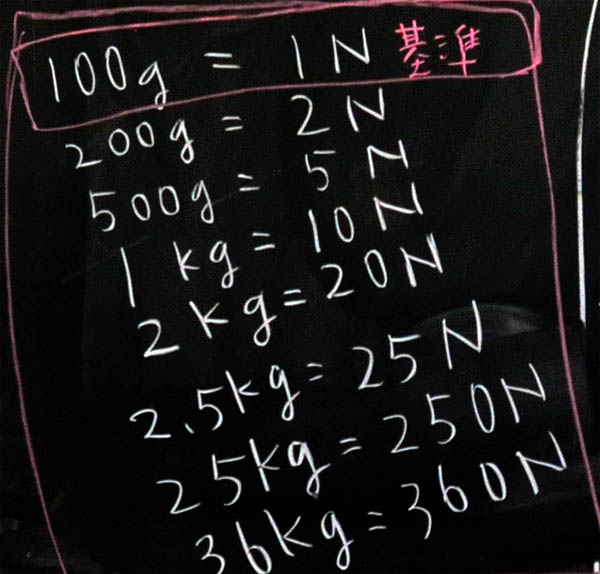 100g = 1N 基準
200g = 2N
500g = 5N
1kg = 10N
2kg = 20N
2.5kg = 25N
25kg = 250N
36kg = 360N